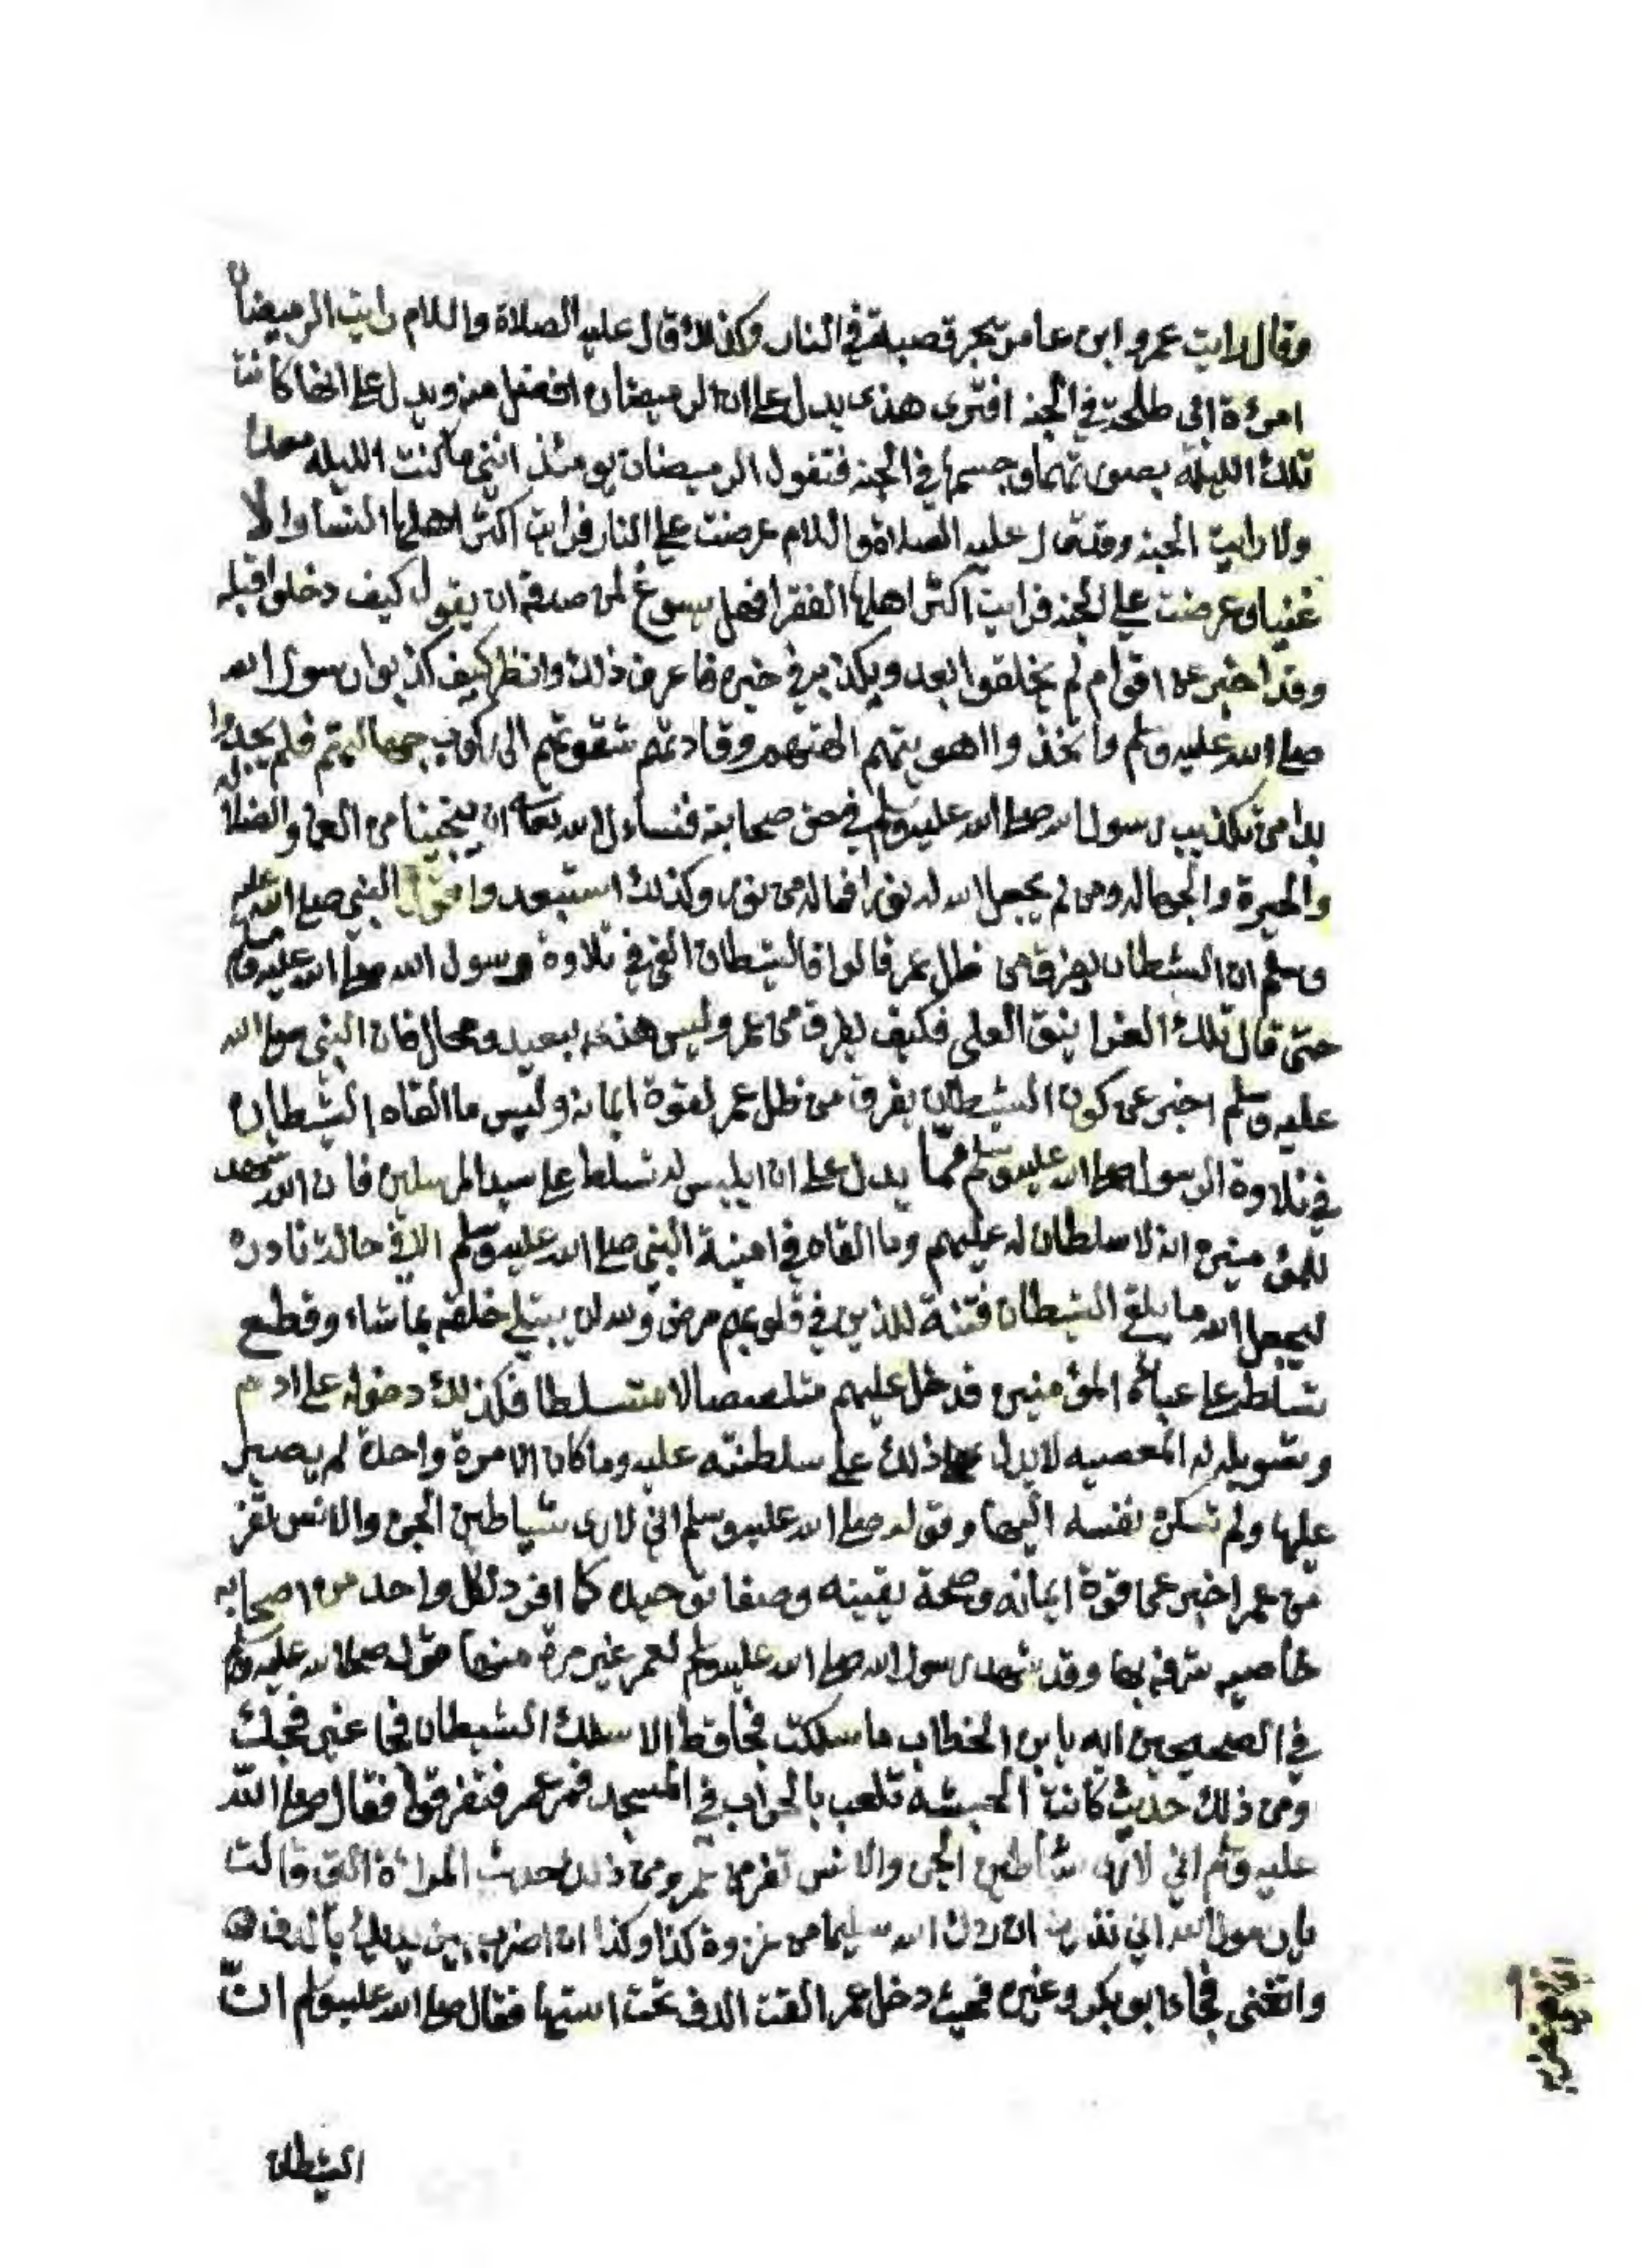 وقال رايت عمرو ابن عامر يجر قصبة في النار وكذلك قال عليه الصلاة والسلام رايت الرميضا
امرءة ابي طلحة في الجنه افترى هذى يدل على ان الرميضان افضل منه ويدل على انها كانت
تلك الليلة بصورتها وجسمها في الجنه فتقول الرميضان يومئذ انني ما كنت الليله معدا
ولا رايت الجنه وقد قال عليه الصلاة والسلام عرضت علي النار فرايت اكثر اهلها النسا والا
غنيا وعرضت علي الجنه فرايت اكثر اهلها الفقرا فهل يسوغ لمن صدقه ان يقول كيف دخلوا قبله
وقد اخبر عن اقوام لم يخلقوا بعد ويكذبه في خبره فاعرف ذلك وانظر كيف كذبوا رسول الله
صلى الله عليه وسلم واتخذوا اهويتهم الهتهم وقادتهم شقوتهم الى ركوب جهالتهم فلم يجدوا
بدا من تكذيب رسول الله صلى الله عليه وسلم في حق صحابته فنساءل الله تعالى ان ينجينا من العما والضلال
والحيرة والجهاله ومن لم يجعل الله له نورا فما له من نور وكذلك استبعدوا قول النبي صلى الله عليه
وسلم ان الشطان يفرق من ظل عمر قالوا فالشطان القى في تلاوة رسول الله صلى الله عليه وسلم
حتى قال تلك الغرانيق العلى فكيف يفرق من عمر وليس هذه ببعيد ومحال فان النبي صلى الله
عليه وسلم اخبر عن كون الشيطان يفرق من ظل عمر لقوة ايمانه وليس ما القاه الشطان
في تلاوة الرسول صلى الله عليه وسلم مما يدل على ان ابليس له تسلط على سيد المرسلين فان الله شهد
للمؤمنين انه لا سلطان له عليهم وما القاه في امنية النبي صلى الله عليه وسلم الا في حالة نادرة
ليجعل الله ما يلقي الشيطان فتنة للذين في قلوبهم مرض ولله ان يبتلي خلقه بما شاء وقطع
تسلطه على عباده المؤمنين فدخل عليهم متلصصا لا متسلطا فكذلك دخوله على ادم
وتسويله له المعصيه لا يدل ذلك على سلطنته عليه وما كان الا مرة واحدة لم يصبر
عليها ولم تسكن نفسه اليها وقوله صلى الله عليه وسلم اني لارى شياطين الجن والانس تفر
من عمر اخبر عن قوة ايمانه وصحة يقينه وصفا توحيده كما افرد لكل واحد من اصحابه
خاصيه شرفه بها وقد شهد رسول الله صلى الله عليه وسلم لعمر غير مرة منها قوله صلى الله عليه وسلم
في الصحيحين ايه يا بن الخطاب ما سلكت فجا قط الا سلك الشيطان فجا غير فجك
ومن ذلك حديث كانت الحبشه تلعب بالحراب في المسجد فمر عمر فتفرقوا فقال صلى الله
عليه وسلم اني لارى شياطين الجن والانس تفر من عمر ومن ذلك حديث المراءة التي قالت
يا رسول الله اني نذرت ان ردك الله سليما من غزوة كذا وكذا ان اضرب بين يديك بالدف
واتغنى فجاء ابو بكر وغيره فحيث دخل عمر القت الدف تحت استها فقال صلى الله عليه وسلم ان
الشيطان